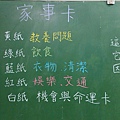 家事卡
黃紙 教養問題
綠紙 飲食
藍紙 衣物 清潔
紅紙 娛樂 交通
白紙 機會與命運卡
這